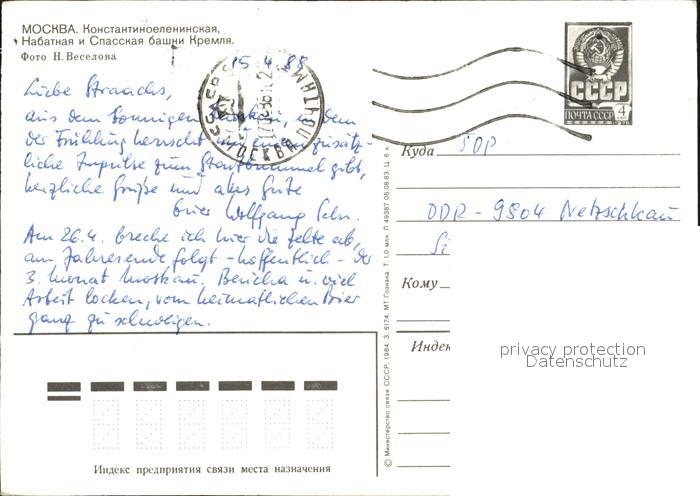 МОСКВА. Константиноеленинская,
Набатная и Спасская башни Кремля.
Фото Н. Веселова
15.4.88
Liebe Straachs,
aus dem sonnigen Moskau, in dem
der Frühling herrscht und einen zusätz-
liche Impulse zum gibt,
herzliche Grüße und alles Gute
Wolfgang Schr.
Am 26.4. breche ich hier die Zelte ab,
am Jahresende folgt - hoffentlich - der
3. Monat Moskau. Berichte u. viel
Arbeit locken, vom heimatlichen Bier
ganz zu schweigen.
МОСКВА
ПОЧТАМТ
СССР
ПОЧТА СССР
4
Куда ГДР
DDR - 9804 Netzschkau
Кому
Индек
privacy protection
Datenschutz
Индекс предприятия связи места назначения
© Министерство связи СССР, 1984. З. 6174. МТ Гознака. Т. 1,0 мл. Л 49387 05.08.83. Ц. 6 к.